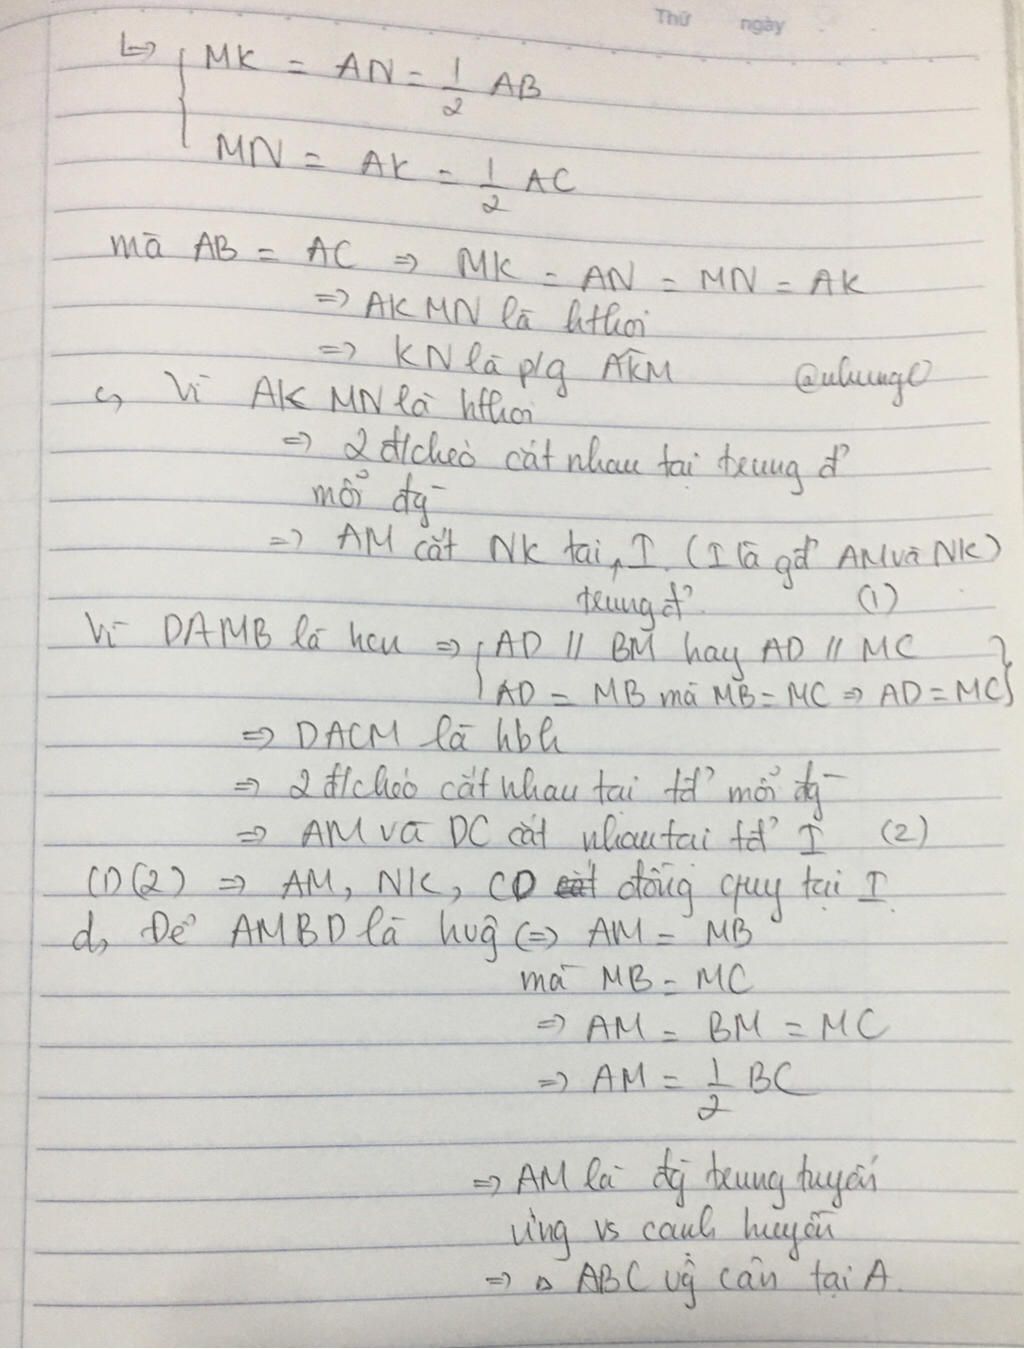 Thứ ngày
↳ { MK = AN = 1/2 AB
MN = AK = 1/2 AC
mà AB = AC ⇒ MK = AN = MN = AK
⇒ AKMN là hthoi
⇒ KN là p/g AKM @nhung0
c, Vì AKMN là hthoi
⇒ 2 đ/chéo cắt nhau tại trung đ'
mỗi đg
⇒ AM cắt NK tại I (I là gđ AM và NK)
trung đ' (1)
Vì DAMB là hcn ⇒ { AD // BM hay AD // MC
AD = MB mà MB = MC ⇒ AD = MC }
⇒ DACM là hbh
⇒ 2 đ/chéo cắt nhau tại tđ' mỗi đg
⇒ AM và DC cắt nhau tại tđ' I (2)
(1)(2) ⇒ AM, NK, CD đồng quy tại I
d, Để AMBD là hvg ⇔ AM = MB
mà MB = MC
⇒ AM = BM = MC
⇒ AM = 1/2 BC
⇒ AM là đg trung tuyến
ứng vs cạnh huyền
⇒ △ ABC vg cân tại A.